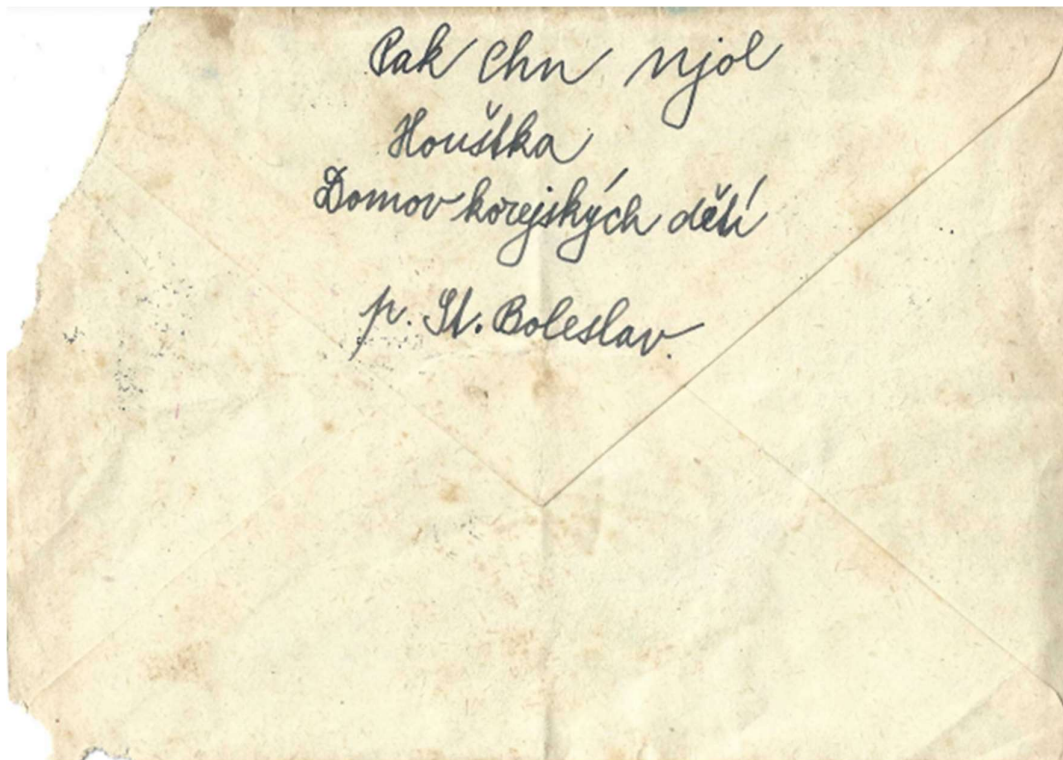 Pak Chn njol
Houštka
Domov korejských dětí
p. St. Boleslav.